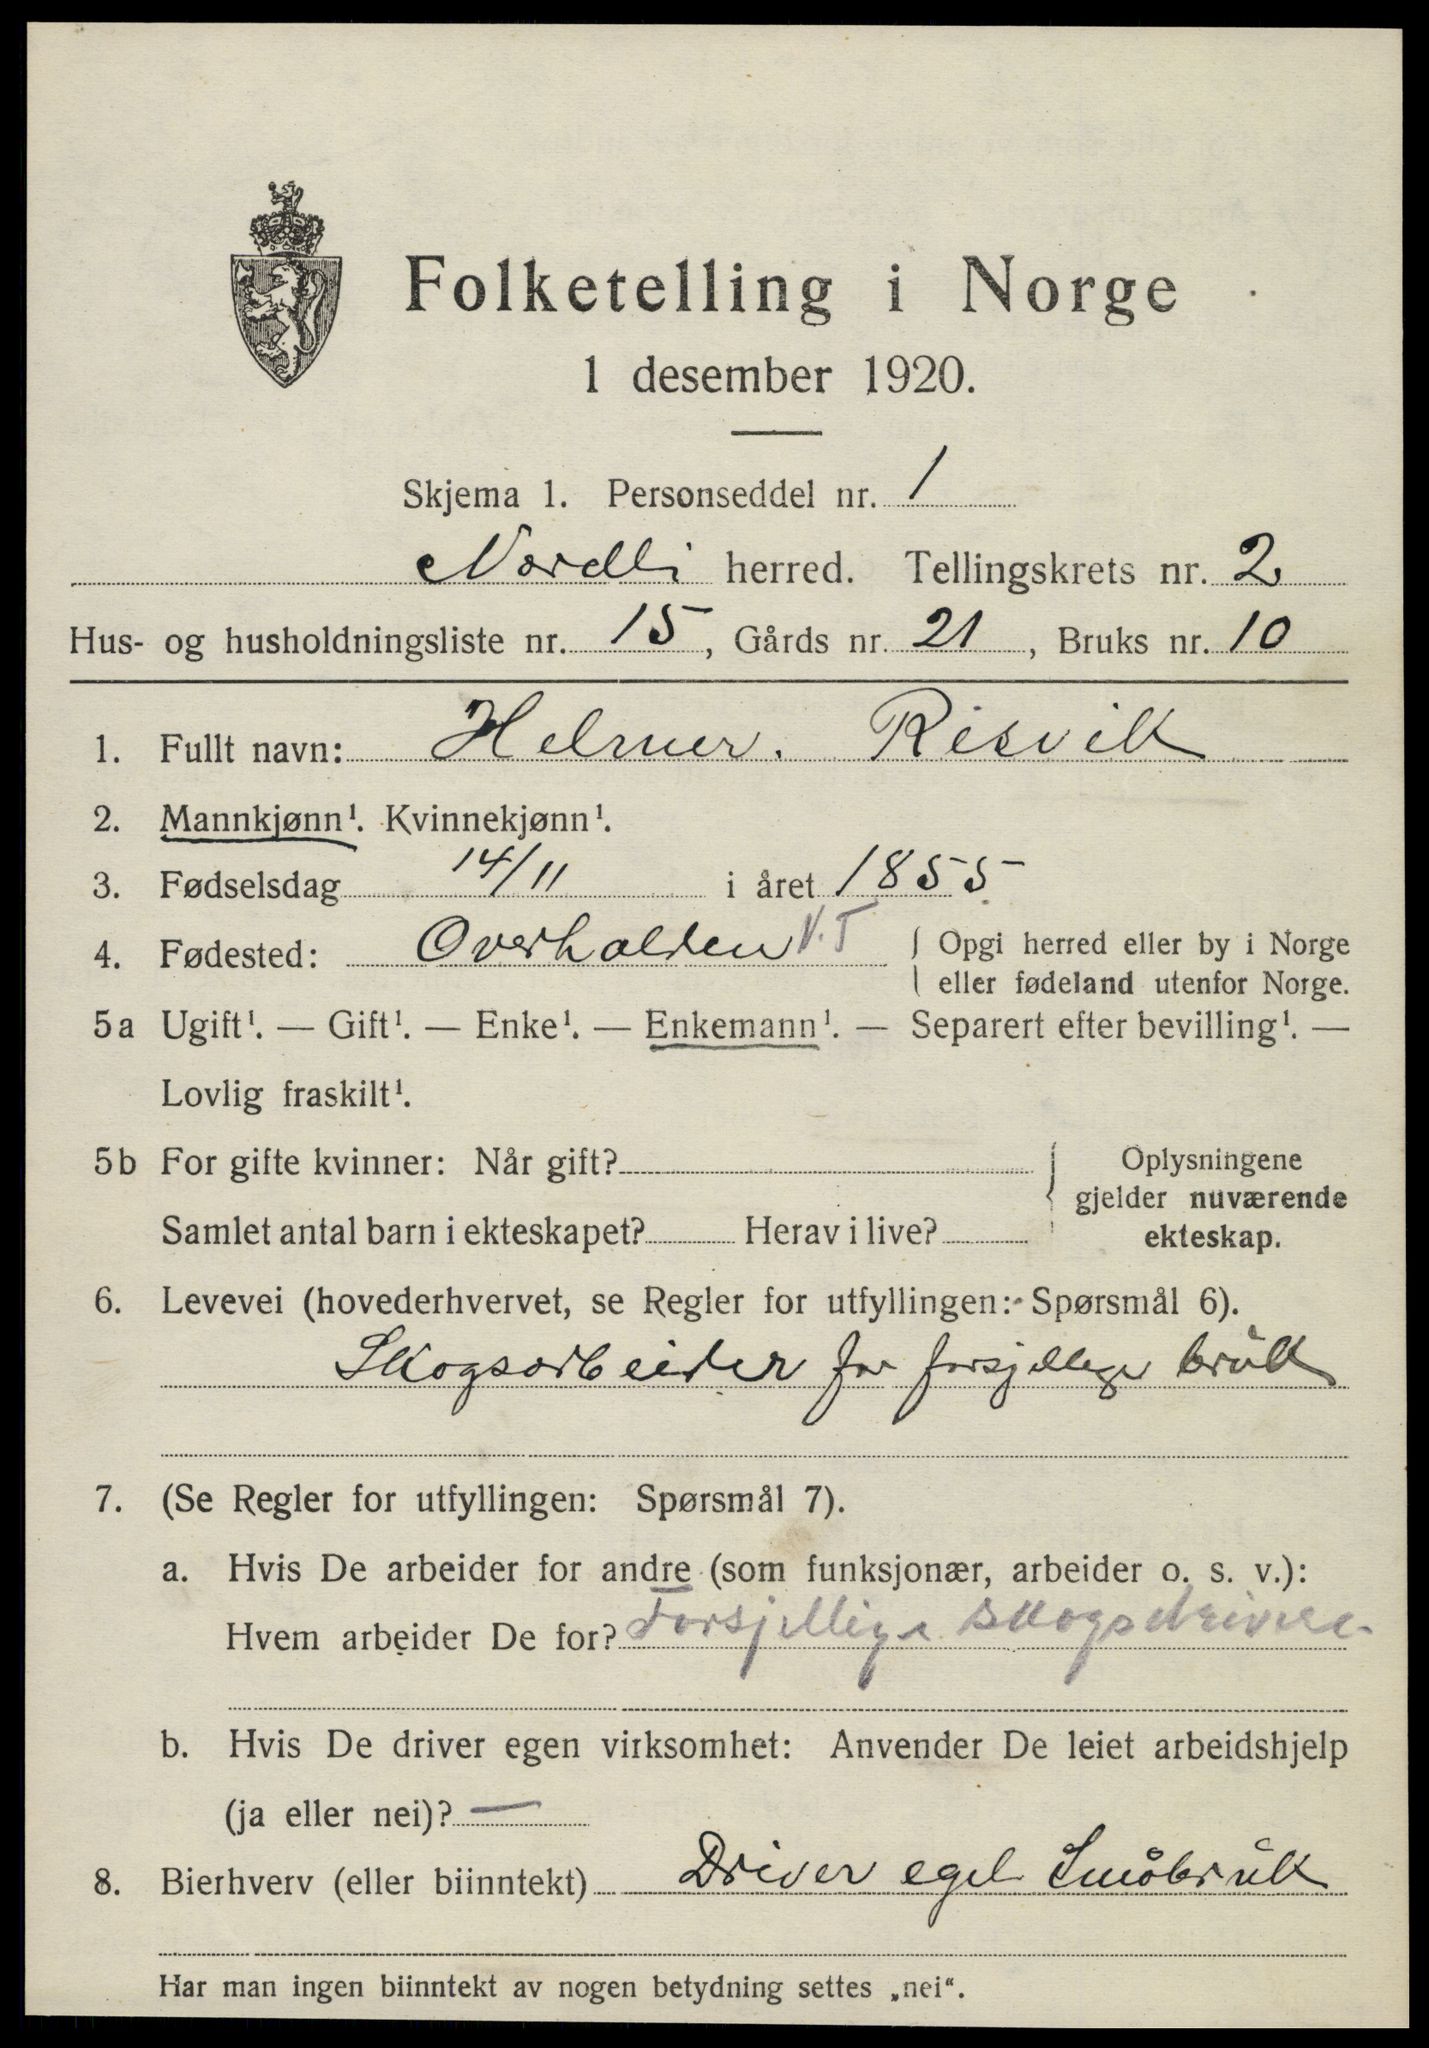 Folketelling i Norge
1 desember 1920.
Skjema 1. Personseddel nr. 1
Nordli herred. Tellingskrets nr. 2
Hus- og husholdningsliste nr. 15, Gårds nr. 21, Bruks nr. 10
1. Fullt navn: Helmer. Risvik
2. Mannkjønn¹. Kvinnekjønn¹.
3. Fødselsdag 14/11 i året 1855
4. Fødested: Overhalden N.T { Opgi herred eller by i Norge
eller fødeland utenfor Norge.
5a Ugift¹. — Gift¹. — Enke¹. — Enkemann¹. — Separert efter bevilling¹. —
Lovlig fraskilt¹.
5b For gifte kvinner: Når gift?
Samlet antal barn i ekteskapet? Herav i live?
Oplysningene
gjelder nuværende
ekteskap.
6. Levevei (hovederhvervet, se Regler for utfyllingen: Spørsmål 6).
Skogsarbeider for forsjellige bruk
7. (Se Regler for utfyllingen: Spørsmål 7).
a. Hvis De arbeider for andre (som funksjonær, arbeider o. s. v.):
Hvem arbeider De for? Forsjellige skogsdrivere
b. Hvis De driver egen virksomhet: Anvender De leiet arbeidshjelp
(ja eller nei)? —
8. Bierhverv (eller biinntekt) Driver eget Småbruk
Har man ingen biinntekt av nogen betydning settes „nei“.